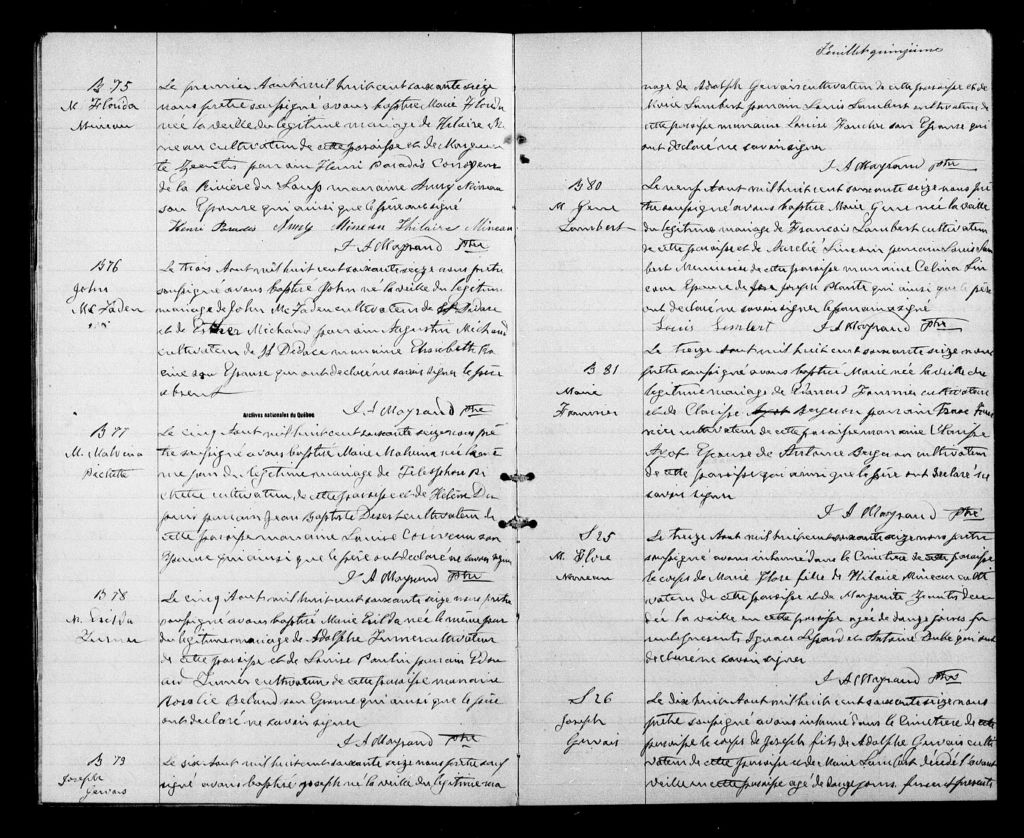 B 75
M. Florida
Mineau
Le premier Aout mil huit cent soixante seize
nous prêtre soussigné avons baptisé Marie Florida
née la veille du légitime mariage de Hilaire Mi
neau cultivateur de cette paroisse et de Margueri
te parrain Henri Paradis
de la Rivière du Loup marraine Mineau
son Epouse qui ainsi que le père ont signé
Henri Paradis Mineau Hilaire Mineau
J A Mayrand ptre
B 76
John
Mc Faden
Le trois Aout mil huit cent soixante seize nous prêtre
soussigné avons baptisé John né la veille du légitime
mariage de John Mc Faden cultivateur de St Didace
et de Esther Michaud parrain Augustin Michaud
cultivateur de St Didace marraine Elisabeth Ra
cine son Epouse qui ont declaré ne savoir signer le père
absent
J A Mayrand ptre
Archives nationales du Québec
B 77
M. Malvina
Pichette
Le cinq Aout mil huit cent soixante seize nous prê
tre soussigné avons baptisé Marie Malvina née le mê
me jour du légitime mariage de Télésphore Pi
chette cultivateur de cette paroisse et de Hélène Du
puis parrain Jean Baptiste cultivateur de
cette paroisse marraine Louise son
Epouse qui ainsi que le père ont declaré ne savoir signer
J A Mayrand ptre
B 78
M. Exilda
Le cinq Aout mil huit cent soixante seize nous prêtre
soussigné avons baptisé Marie Exilda née le même jour
du légitime mariage de Adolphe cultivateur
de cette paroisse et de Louise Paulin parrain Edou
ard cultivateur de cette paroisse marraine
Rosalie Beland son Epouse qui ainsi que le père
ont declaré ne savoir signer
J A Mayrand ptre
B 79
Joseph
Gervais
Le six Aout mil huit cent soixante seize nous prêtre sous
signé avons baptisé Joseph né la veille du légitime ma
Feuillet quinzième
riage de Adolphe Gervais cultivateur de cette paroisse et de
Marie Lambert parrain Louis Lambert cultivateur de
cette paroisse marraine Louise son Epouse qui
ont declaré ne savoir signer
J A Mayrand ptre
B 80
M.
Lambert
Le neuf Aout mil huit cent soixante seize nous prê
tre soussigné avons baptisé Marie née la veille
du légitime mariage de François Lambert cultivateur
de cette paroisse et de Aurélie Sincour parrain Louis Lam
bert Menuisier de cette paroisse marraine Celina Sin
cour Epouse de Joseph Plante qui ainsi que le père
ont declaré ne savoir signer le parrain a signé
Louis Lembert J A Mayrand ptre
B 81
Marie
Fournier
Le treize Aout mil huit cent soixante seize nous
prêtre soussigné avons baptisé Marie née la veille du
légitime mariage de Fournier cultivateur
et de Clarisse Bergeron parrain Isaac Four
nier cultivateur de cette paroisse marraine Clarisse
Ayot Epouse de Antoine Bergeron cultivateur
de cette paroisse qui ainsi que le père ont declaré ne
savoir signer
J A Mayrand ptre
S 25
M. Flore
Mineau
Le treize Aout mil huit cent soixante seize nous prêtre
soussigné avons inhumé dans le Cimetière de cette paroisse
le corps de Marie Flore fille de Hilaire Mineau culti
vateur de cette paroisse et de Marguerite décé
dée la veille en cette paroisse agée de douze jours fu
rent présents Ignace et Antoine qui ont
declaré ne savoir signer
J A Mayrand ptre
S 26
Joseph
Gervais
Le dix huit Aout mil huit cent soixante seize nous
prêtre soussigné avons inhumé dans le Cimetière de cette
paroisse le corps de Joseph fils de Adolphe Gervais culti
vateur de cette paroisse et de Marie Lambert décédé l'avant
veille en cette paroisse agé de douze jours furent présents